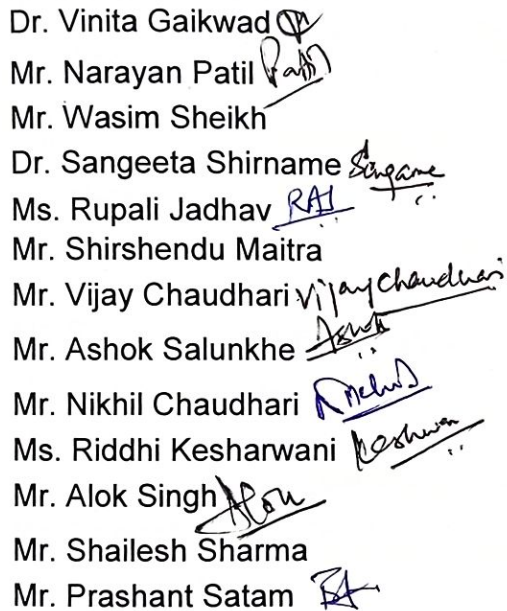 Dr. Vinita Gaikwad
Mr. Narayan Patil Patil
Mr. Wasim Sheikh
Dr. Sangeeta Shirname
Ms. Rupali Jadhav RAJ
Mr. Shirshendu Maitra
Mr. Vijay Chaudhari Vijay Chaudhari
Mr. Ashok Salunkhe Ashok
Mr. Nikhil Chaudhari
Ms. Riddhi Kesharwani
Mr. Alok Singh Alok
Mr. Shailesh Sharma
Mr. Prashant Satam